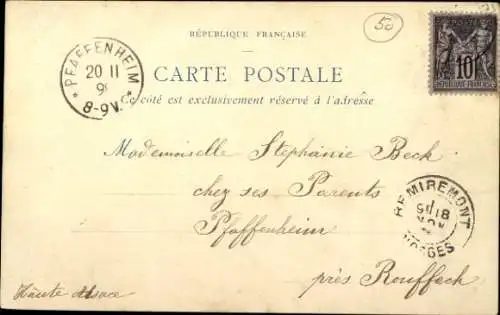 RÉPUBLIQUE FRANÇAISE
50
POSTE
10
RÉPUBLIQUE FRANÇAISE
PFAFFENHEIM
20 11
8-9V.
CARTE POSTALE
Ce côté est exclusivement réservé à l'adresse
Mademoiselle Stephanie Beck
chez ses Parents
REMIREMONT
18
VOSGES
Pfaffenheim
près Rouffach
Haute Alsace